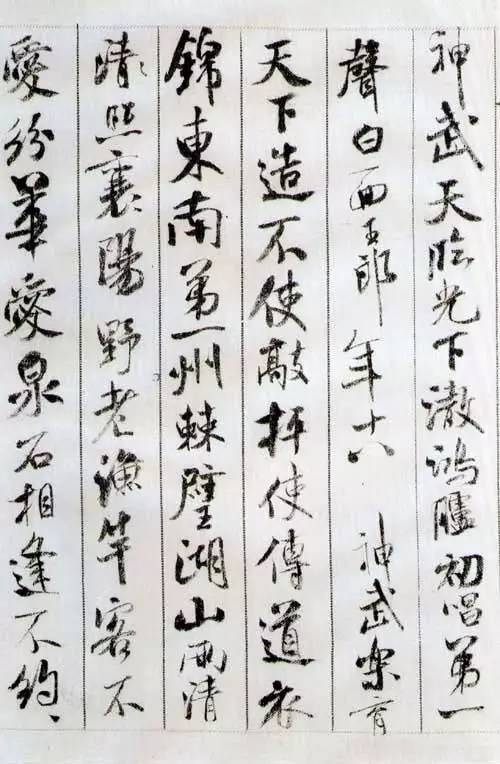 神武天臨光下澈鴻臚初唱第一
聲白面玉郎年十八 神武樂育
天下造不使敲抨使傳道衣
錦東南第一州棘璧湖山兩清
清照襄陽野老漁竿客不
愛紛華愛泉石相逢不約、